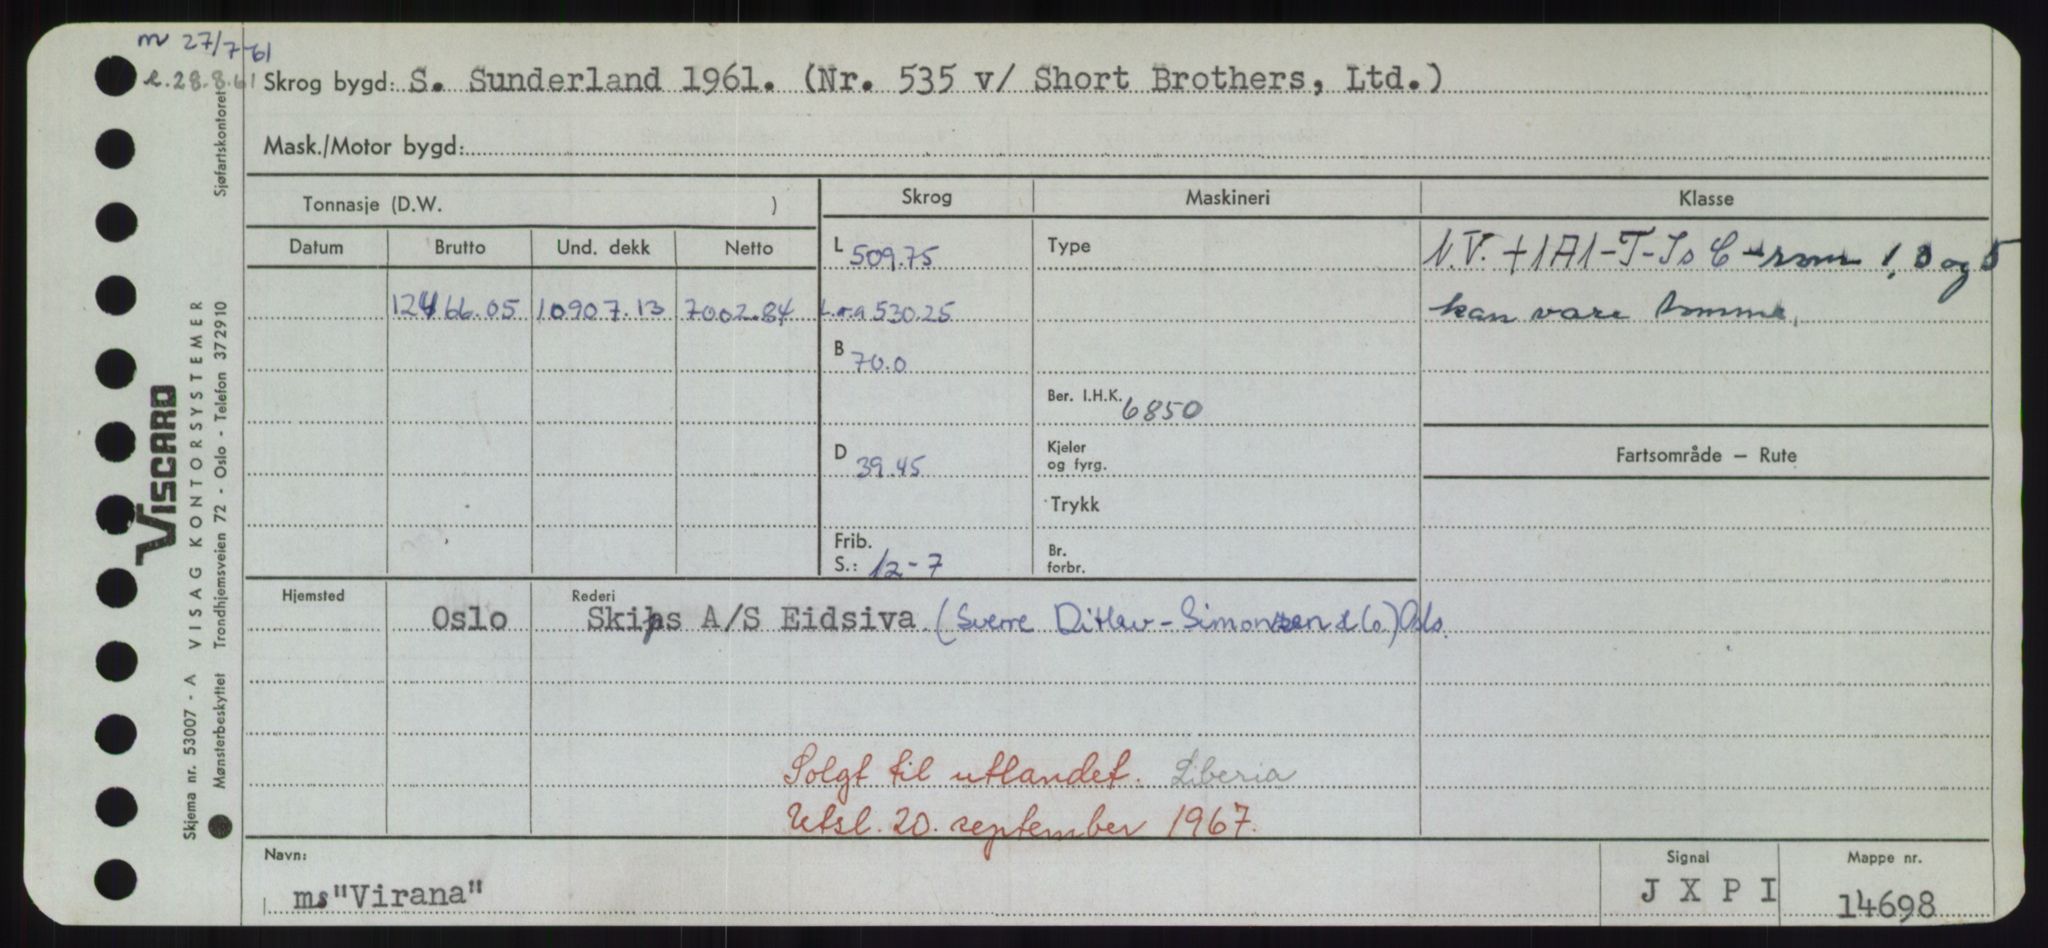 m 27/7-61
e. 28.8.61
Skrog bygd: S. Sunderland 1961. (Nr. 535 v/ Short Brothers, Ltd.)
Mask./Motor bygd:
Tonnasje (D.W. )
Skrog
Maskineri
Klasse
Datum Brutto Und. dekk Netto
L 509.75
Type
N.V. +1A1-T-Is C - rom 1, 3 og 5
12466.05 10907.13 7002.84
L.o.a 530.25
kan være tomme.
B 70.0
Ber. I.H.K. 6850
D 39.45
Kjeler
og fyrg.
Fartsområde – Rute
Trykk
Frib.
S.: 12-7
Br.
forbr.
Hjemsted Rederi
Oslo Skips A/S Eidsiva (Sverre Ditlev-Simonsen & Co.) Oslo.
Solgt til utlandet. Liberia
Utsl. 20. september 1967.
Navn: Signal Mappe nr.
ms "Virana" J X P I 14698
VISCARD
Skjema nr. 53007 - A VISAG KONTORSYSTEMER
Mønsterbeskyttet Trondhjemsveien 72 - Oslo - Telefon 372910 Sjøfartskontoret